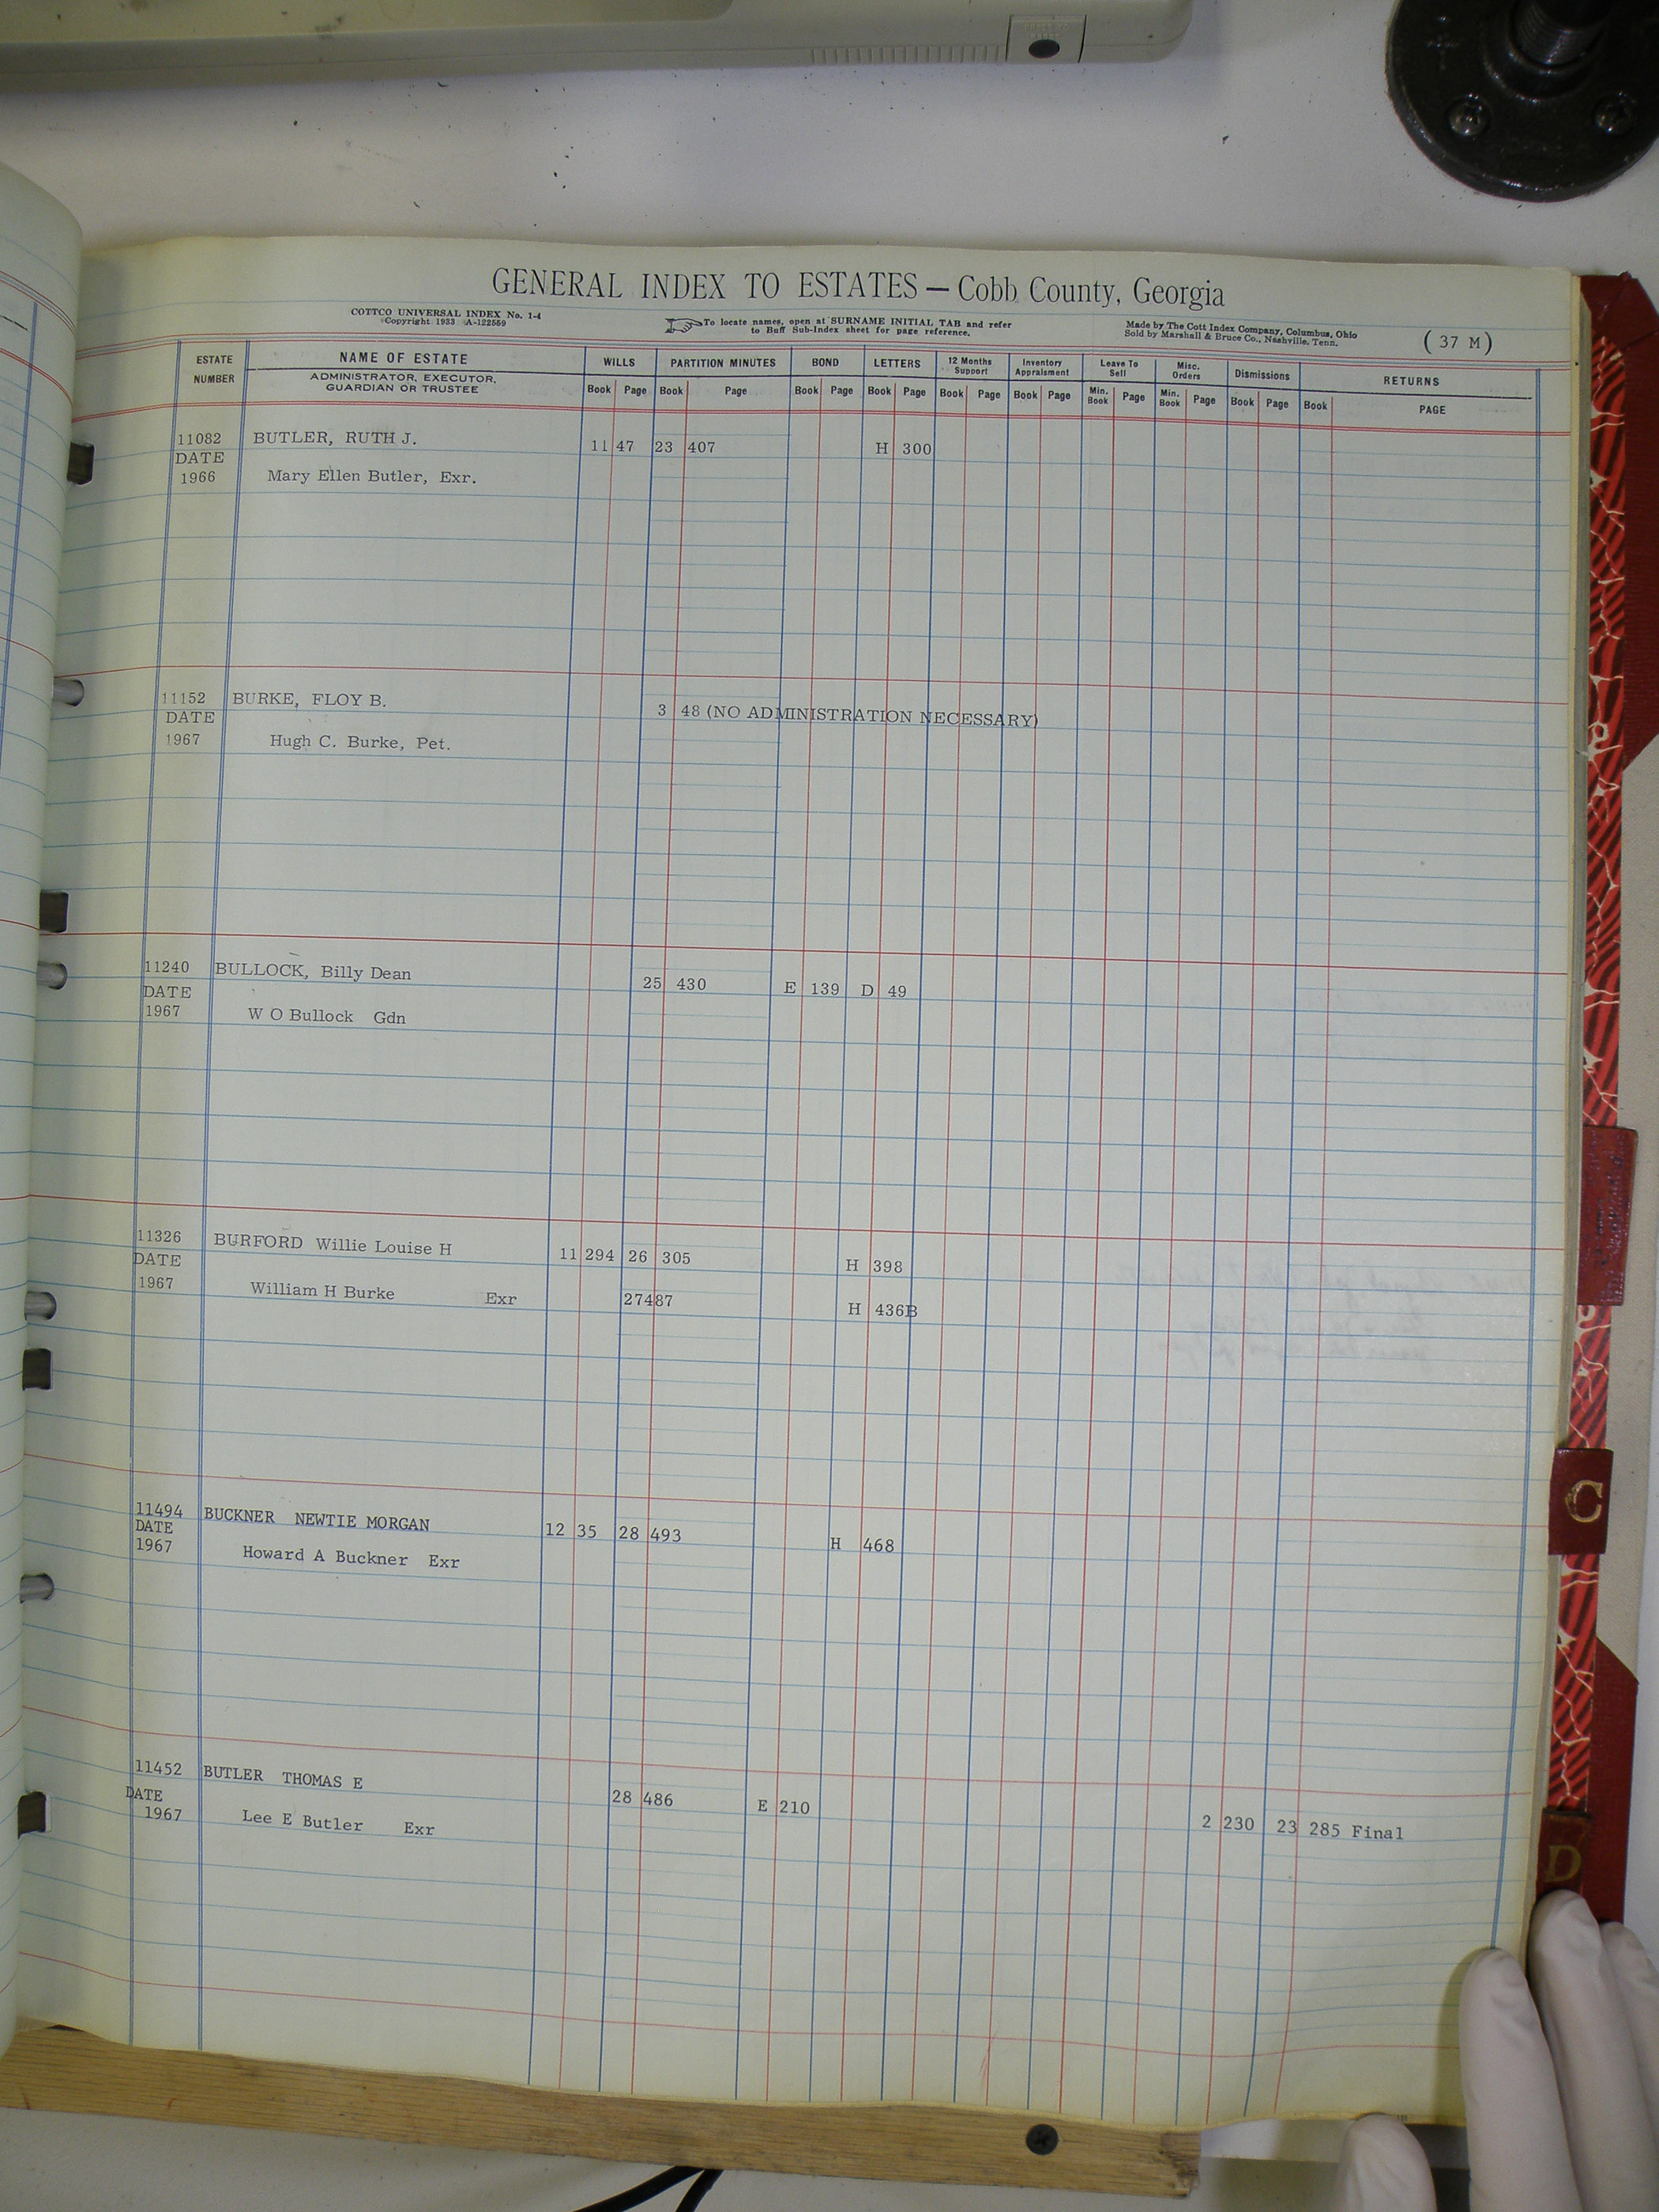 GENERAL INDEX TO ESTATES — Cobb County, Georgia
COTTCO UNIVERSAL INDEX No. 1-4
Copyright 1933 A-122559
To locate names, open at SURNAME INITIAL TAB and refer
to Buff Sub-Index sheet for page reference.
Made by The Cott Index Company, Columbus, Ohio
Sold by Marshall & Bruce Co., Nashville, Tenn.
( 37 M )
ESTATE NUMBER
NAME OF ESTATE
ADMINISTRATOR, EXECUTOR,
GUARDIAN OR TRUSTEE
WILLS PARTITION MINUTES BOND LETTERS 12 Months Support Inventory Appraisment Leave To Sell Misc. Orders Dismissions RETURNS
Book Page Book Page Book Page Book Page Book Page Book Page Min. Book Page Min. Book Page Book Page Book PAGE
11082 BUTLER, RUTH J. 11 47 23 407 H 300
DATE
1966 Mary Ellen Butler, Exr.
11152 BURKE, FLOY B. 3 48 (NO ADMINISTRATION NECESSARY)
DATE
1967 Hugh C. Burke, Pet.
11240 BULLOCK, Billy Dean 25 430 E 139 D 49
DATE
1967 W O Bullock Gdn
11326 BURFORD Willie Louise H 11 294 26 305 H 398
DATE
1967 William H Burke Exr 27487 H 436B
11494 BUCKNER NEWTIE MORGAN 12 35 28 493 H 468
DATE
1967 Howard A Buckner Exr
11452 BUTLER THOMAS E 28 486 E 210 2 230 23 285 Final
DATE
1967 Lee E Butler Exr
C
D